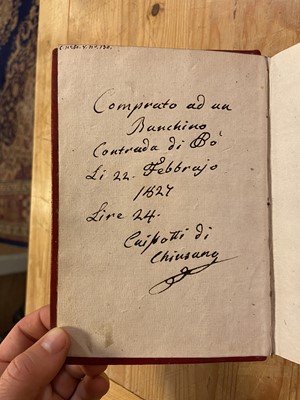 Comprato ad un
Banchino
Contrada di Pò
Li 22. Febbrajo
1827
Lire 24.
di